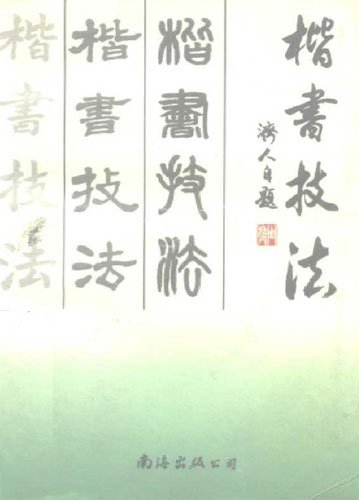 楷書技法
濟人自題
楷書技法
楷書技法
楷書技法
南海出版公司